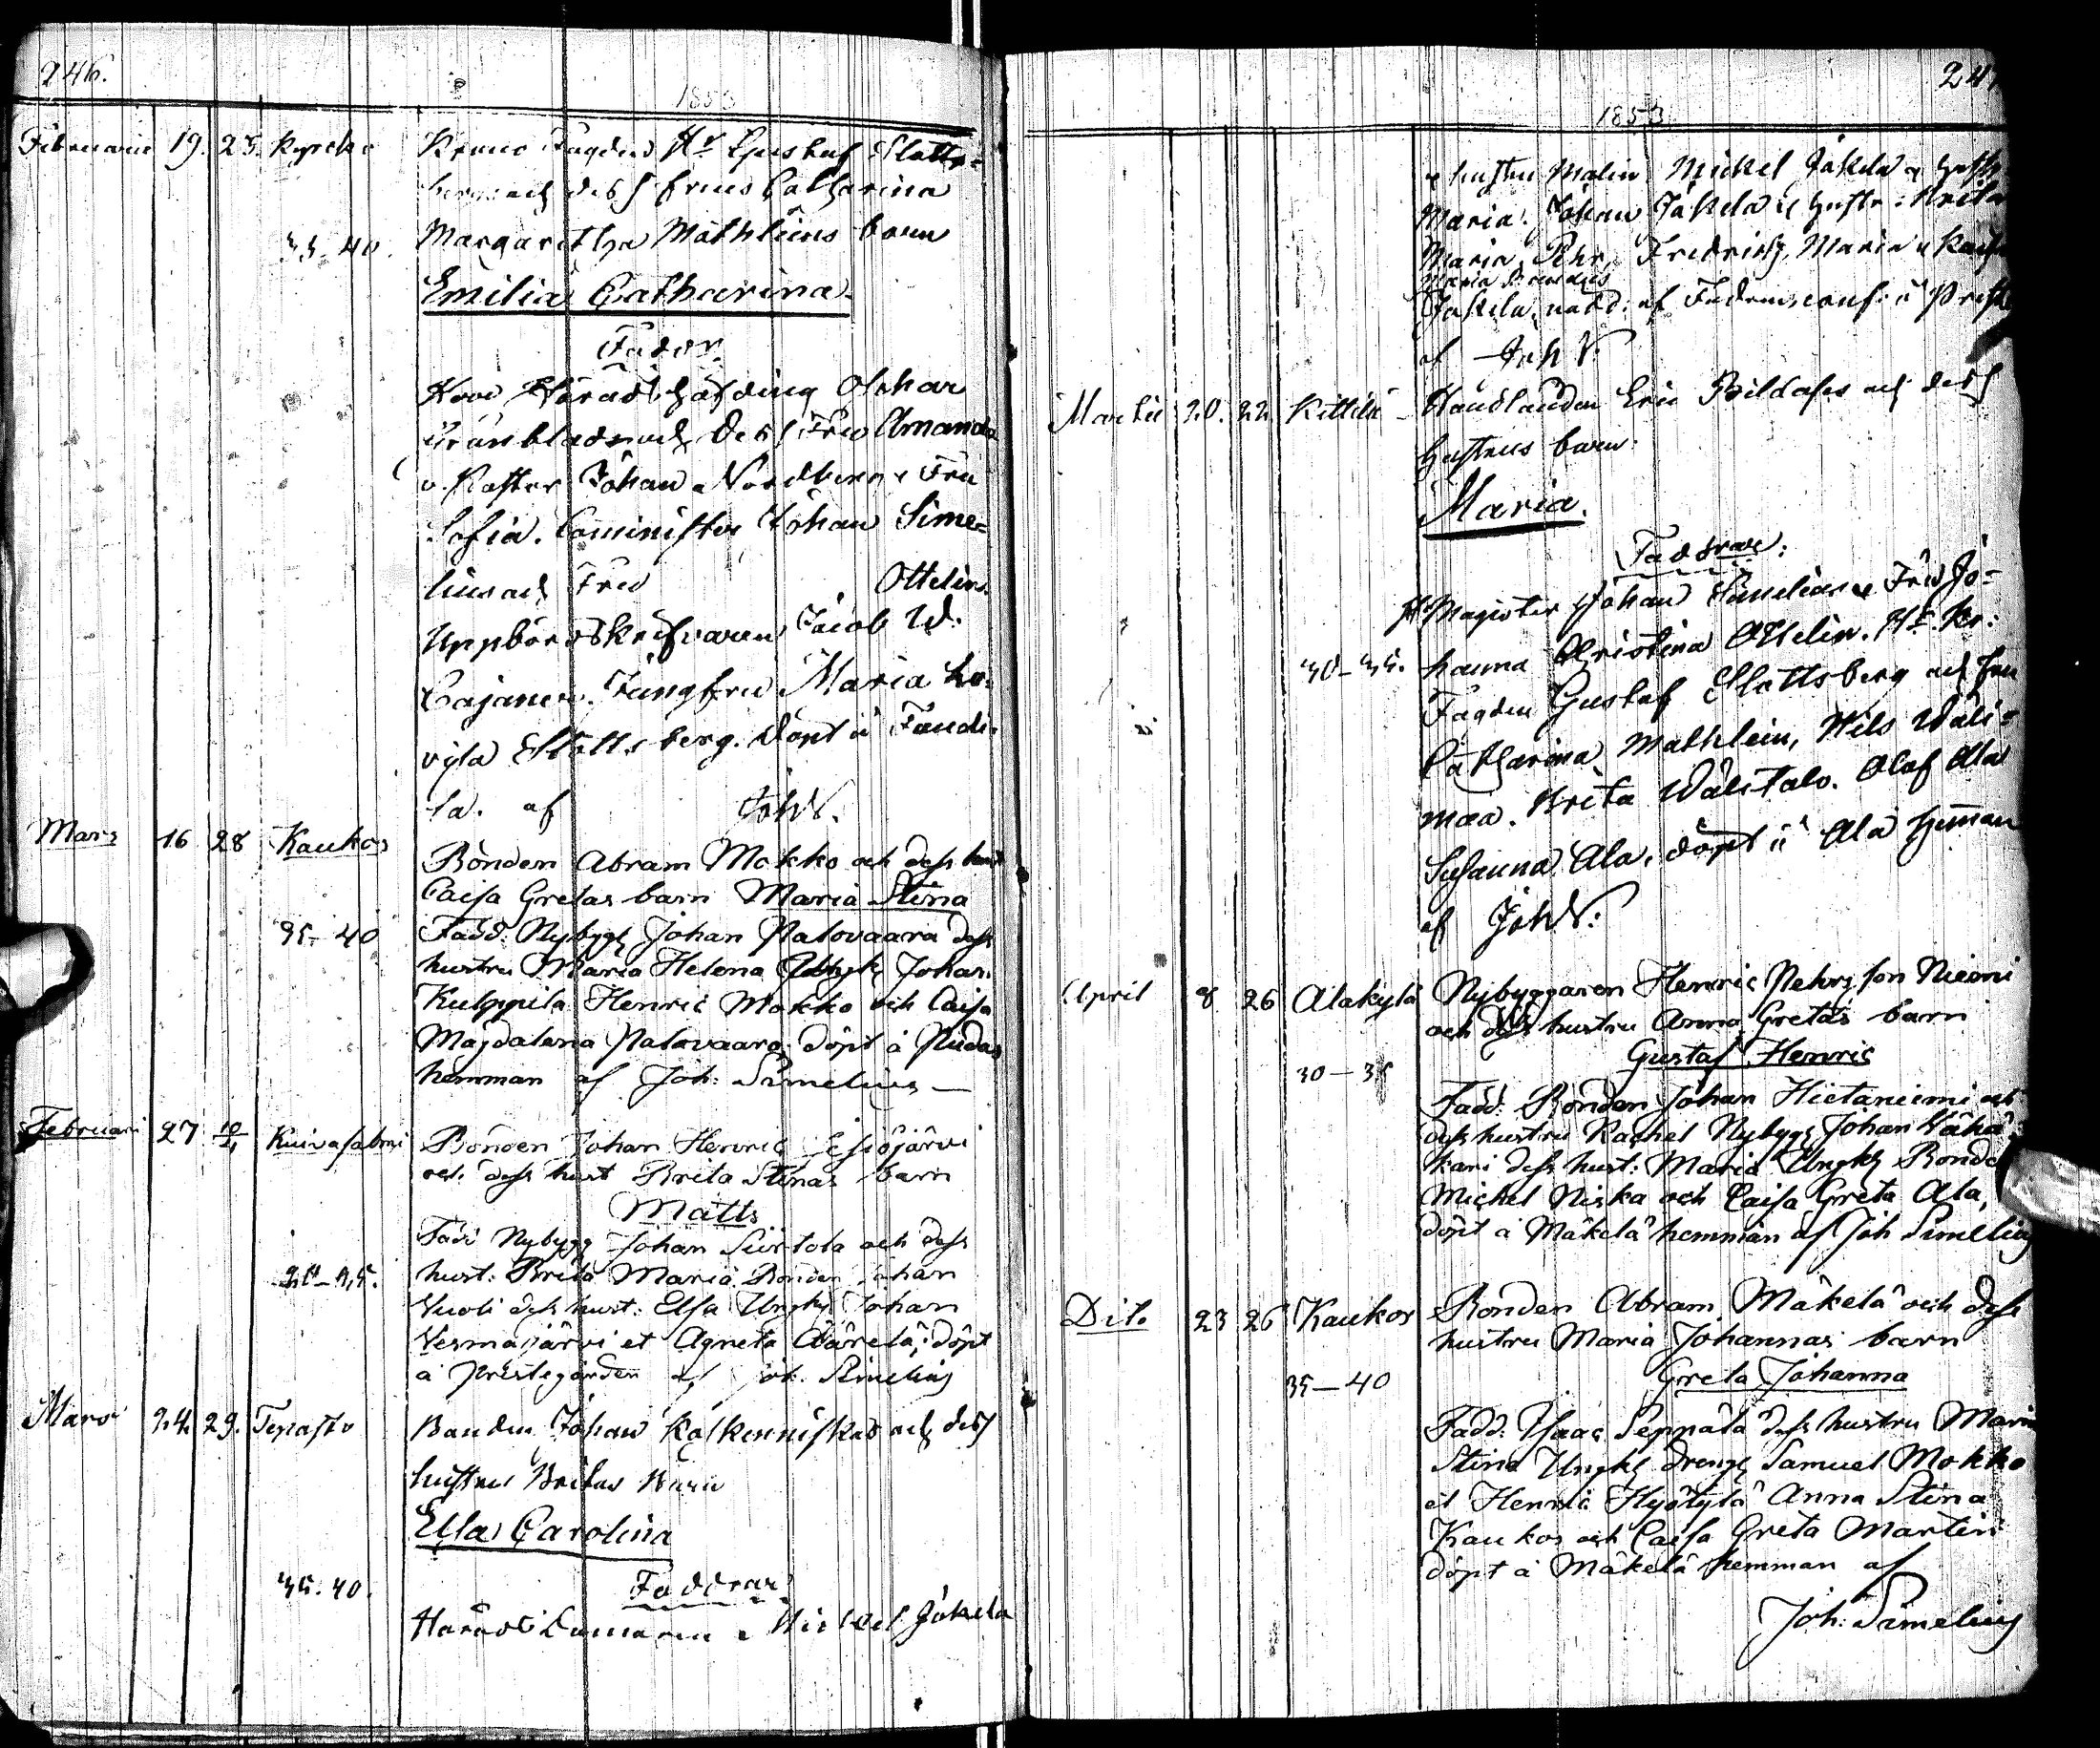 246.
1853
Februarii 19. 25. Kyrcko Krono Fogden Hr Gustaf Slotts=
berg och dess frus Catharina
35-40. Margaretha Mathleins barn
Emilia Catharina.
Fador
Häradshöfding Oskar
och dess Fru Amanda
Johan Nordberg Fru
Sofia. Cominister Johan Sime=
lius och Fru Ottelins.
Uppbördsskrifvaren Jacob W.
Cajaner. Jungfru Maria Lo=
visa Slottsberg. döpt å Fandi=
la. af JohS.
Mars 16 28 Kaukos Bonden Abram Mokko och dess hust
Caisa Gretas barn Maria Stina
35-40 Fadd: Nybygg Johan Palovaara dess
hustru Maria Helena Johan
Kulppila Henric Mokko och Caisa
Magdalena Palovaara döpt å Pudas
hemman af Joh: Simelius —
Februari 27 10/4 Kuivasalmi Bonden Johan Henric Jesiöjärvi
och dess hust Brita Stinas barn
Matts
Fadd Nybygg Johan Siirtola och dess
hust: Brita Maria Bonden Johan
Vuoti dess hust: Elsa Ungk: Johan
Vesmajärvi et Agneta Määretä; döpt
å Prestegården af Joh. Simelius
Mars 24 29. Tepasto Bonden Johan Kalkuniskas och dess
hustrus Britas Barn
Elsa Carolina
35-40. Faddrar
Härads Mickel Jäkela
247
1853
& hustru Malin Mickel Jäkela & hustr
Maria. Johan Jäkela & hustr: Brita
Maria, Pehr, Fredrich, Maria & Kaisa
Maria
Jäkela, nödd: af Fadren conf: i Prest
af JohS.
Martii 20. 22 Kittilä Handlanden Eric Bildases och dess
hustrus barn:
Maria.
Faddrar:
H Magister Johan Simelius & Fru Jo=
30-35. hanna Christina Ottelin. Hr Kr:
Fogden Gustaf Slottsberg och fru
Catharina Mathlein, Nils Wäli=
maa. Brita Wälitalo. Olof Ala
Susanna Ala, döpt å Ala hemman
af JohS:
April 8 26 Alakylä Nybyggaren Henric Pehrsson Niemi
och dess hustru Anna Gretas barn
Gustaf Henric
30-35 Fadd: Bonden Johan Hietaniemi och
dess hustru Rachel Nybygg Johan Vähä=
kari dess hust: Maria Ungk: Bonde
Michel Niska och Caisa Greta Ala,
döpt å Mäkelä hemman af Joh Simelius
Dito 23 26 Kaukos Bonden Abram Mäkelä och dess
hustru Maria Johannas barn
35-40 Greta Johanna
Fadd: Isaac Seppälä dess hustru Maria
Stina Ungk: dreng: Samuel Mokko
et Henric Hyötylä Anna Stina
Kaukos och Caisa Greta Martin
döpt å Mäkelä hemman af
Joh: Simelius